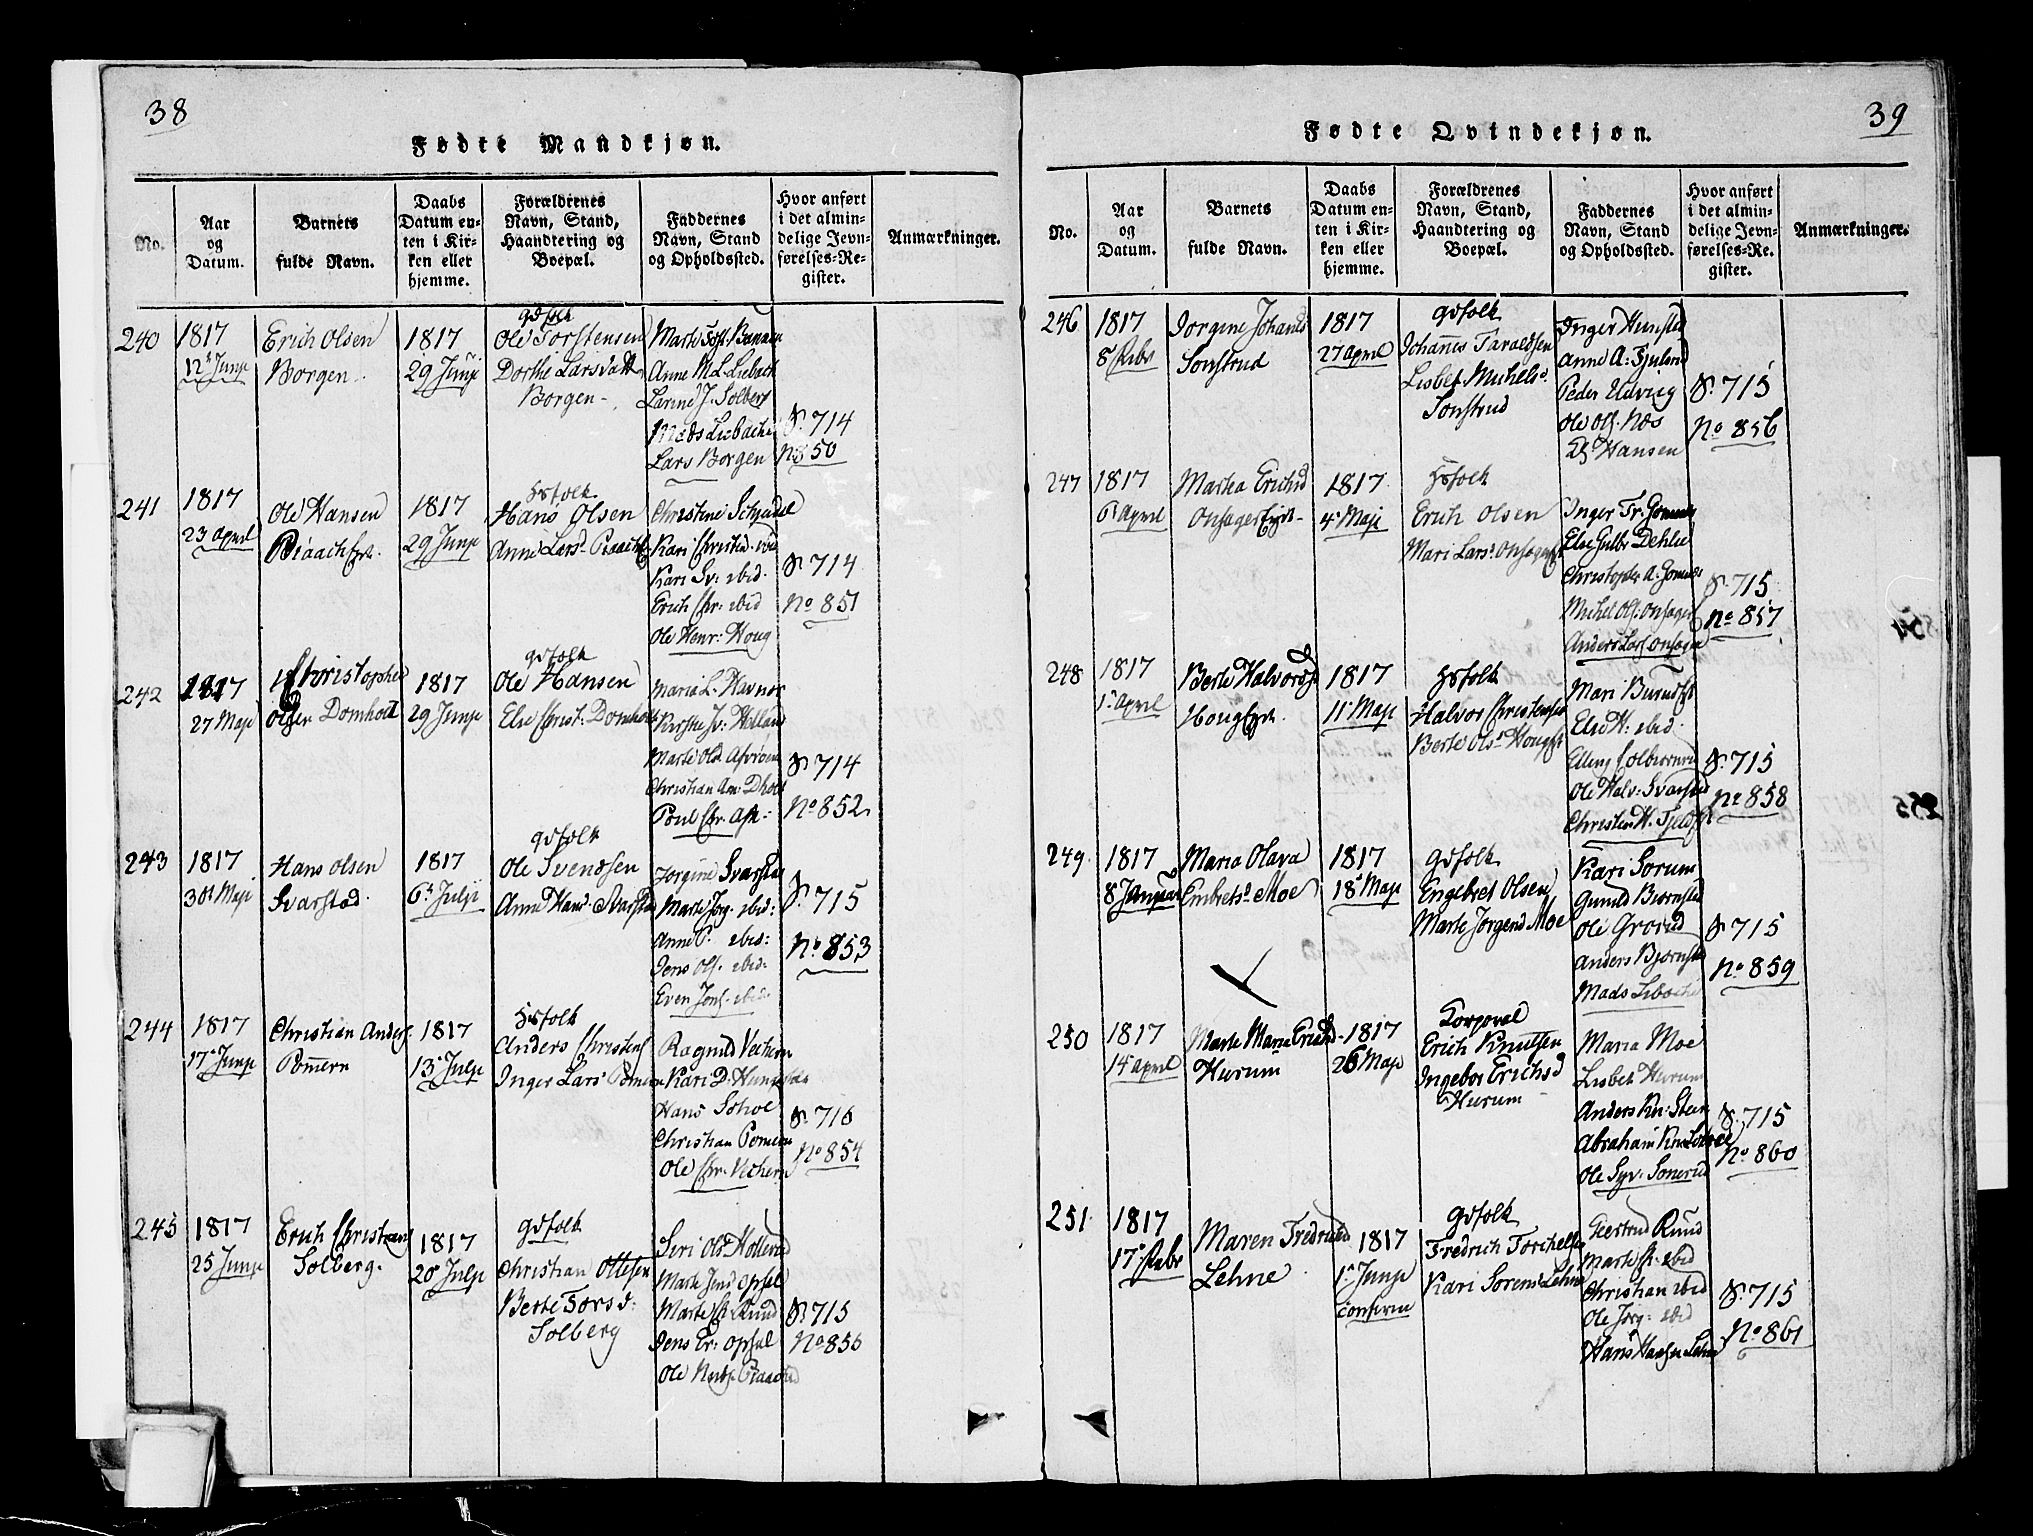 38
Fødte Mandkjøn.
No.
Aar
og
Datum.
Barnets
fulde Navn.
Daabs
Datum en-
ten i Kir-
ken eller
hjemme.
Forældrenes
Navn, Stand,
Haandtering og
Boepæl.
Faddernes
Navn, Stand
og Opholdssted.
Hvor anført
i det almin-
delige Jevn-
førelses-Re-
gister.
Anmærkninger.
240
1817
12t Junji
Erich Olsen
Borgen
1817
29 Junji
gdfolk
Ole Torstensen
Dorthe Larsdatt
Borgen
Anne M. L. Liebach
Larine J. Solberg
Mads Liebach
Lars Borgen
S. 714
No 850
241
1817
23 April
Ole Hansen
1817
29 Junji
Hsfolk
Hans Olsen
Anne Larsd
Christine
Kari Christid. ibid
Kari Sv: ibid.
Erich Chr: ibid
Ole Henr: Houg
S. 714
No 851
242
1817
27 Maji
Christopher
Olsen Domholt
1817
29 Junji
gdfolk
Ole Hansen
Else Christ: Domholt
Maria L. Havnor
Marte Olsd
Christian An: Dholt
Poul Chr.
S. 714
No 852
243
1817
30t Maji
Hans Olsen
Svarstad
1817
6t Julji
gdfolk
Ole Svendsen
Anne Hansd. Svarstad
Jorgine Svarstad
Marte Jorg. ibid:
Anne P. ibid:
Jens Ols. ibid:
Even Jons. ibid:
S. 715
No 853
244
1817
17t Junji
Christian Anders.
Pomern
1817
13t Julji
Hsfolk
Anders Christens
Inger Larsd Pomern
Ragnild Vechern
Kari D.
Hans
Christian Pomern
Ole Chr. Vechern
S. 716
No 854
245
1817
25 Junji
Erich Christians
Solberg.
1817
20 Julji
gdfolk
Christian Ottesen
Berte Torsd:
Solberg
Siri Olsd Hollerud
Marte Jensd Opsal
Marte Chr. Ruud
Jens Er: Opsal
Ole
S. 715
No 855
39
Fødte Qvindekjøn.
No.
Aar
og
Datum.
Barnets
fulde Navn.
Daabs
Datum en-
ten i Kir-
ken eller
hjemme.
Forældrenes
Navn, Stand,
Haandtering og
Boepæl.
Faddernes
Navn, Stand
og Opholdssted.
Hvor anført
i det almin-
delige Jevn-
førelses-Re-
gister.
Anmærkninger.
246
1817
8t
Jorgine Johansd
Sonstrud
1817
27 April
gdfolk
Johannes Taraldsen
Lisbet Michelsd.
Sonstrud
Inger Hunsted
Anne A:
Peder Udvug
Ole Ols. Næs
Hansen
S. 715
No 856
247
1817
6t April
Martea Erichsd
Onsager
1817
4t Maji
Hsfolk
Erich Olsen
Mari Larsd
Inger Fr.
Else Gulbr Dehlie
Christopher A:
Michel Ols: Onsager
Anders Lars Onsager
S. 715
No 857
248
1817
1t April
Berte Halvorsd
Houg
1817
11t Maji
Hsfolk
Halvor Christensen
Berte Olsd Houg
Mari
Else H: ibid.
Elling
Ole Halv: Svarstad
Christen H.
S. 715
No 858
249.
1817
8t Januar
Maria Olava
Embretsd Moe
1817
18t Maji
gdfolk
Engebret Olsen
Marte Jorgensd Moe
Kari Sorum
Gunild Biornsted
Ole Grorud
Anders Bjornsted
Mads Lebach
S. 715
No 859
250
1817
14t April
Marte Maria Erichsd
Hurum
1817
26 Maji
Corporal
Erich Knutsen
Ingebor Erichsd
Hurum
Maria Moe
Lisbet Hurum
Anders Kn: Steen
Abraham Kn:
Ole Syv: Sonerud
S. 715
No 860
251.
1817
17t
Maren Fredrichsd
Lehne
1817
1t Junji
confirm
gdfolk
Fredrich Torchelsen
Kari Sorensd Lehne
Gertrud Ruud
Marte Chr. ibid
Christian ibid
Ole Jorg: ibid
Hans Hansen Lehne
S. 715
No 861